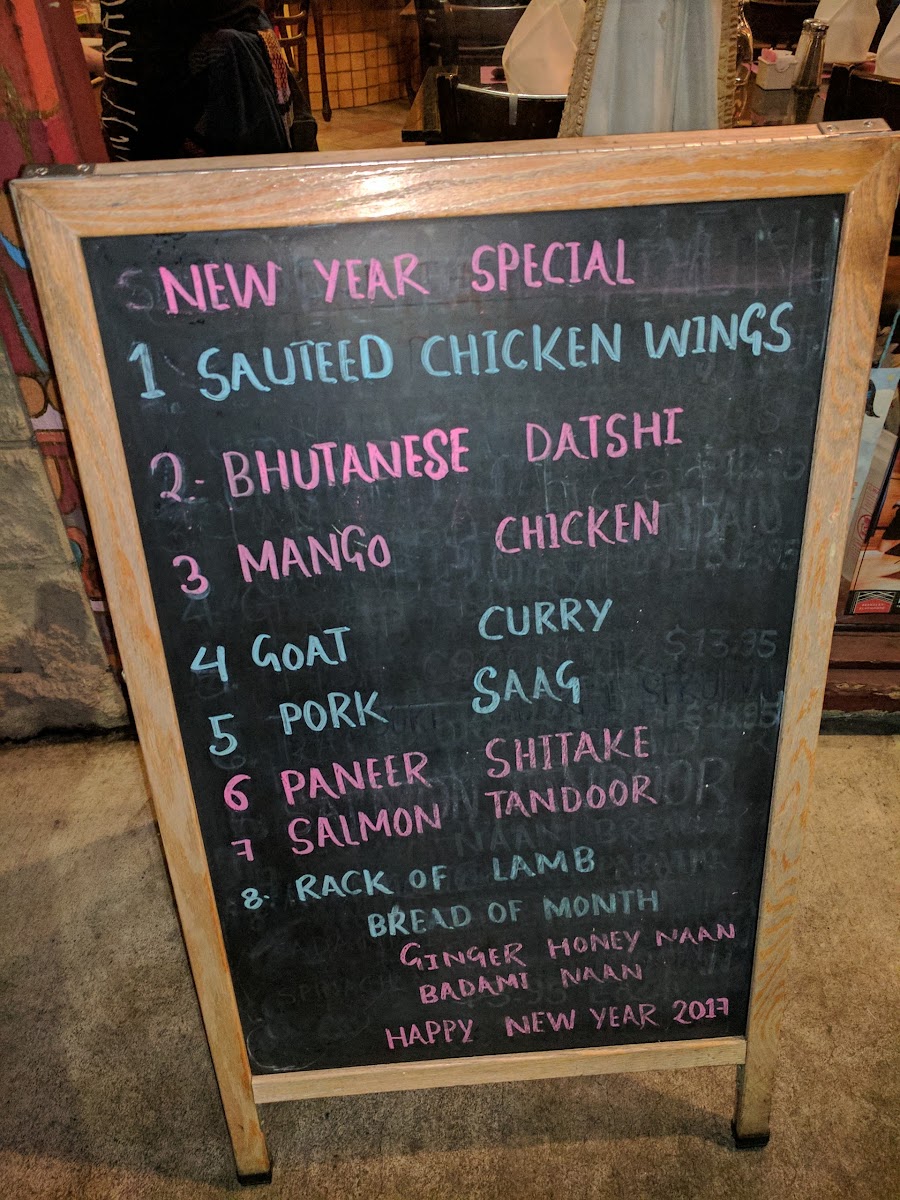 NEW YEAR SPECIAL
1 SAUTEED CHICKEN WINGS
2.- BHUTANESE DATSHI
3 MANGO CHICKEN
4 GOAT CURRY
5 PORK SAAG
6 PANEER SHITAKE
7 SALMON TANDOOR
8. RACK OF LAMB
BREAD OF MONTH
GINGER HONEY NAAN
BADAMI NAAN
HAPPY NEW YEAR 2017